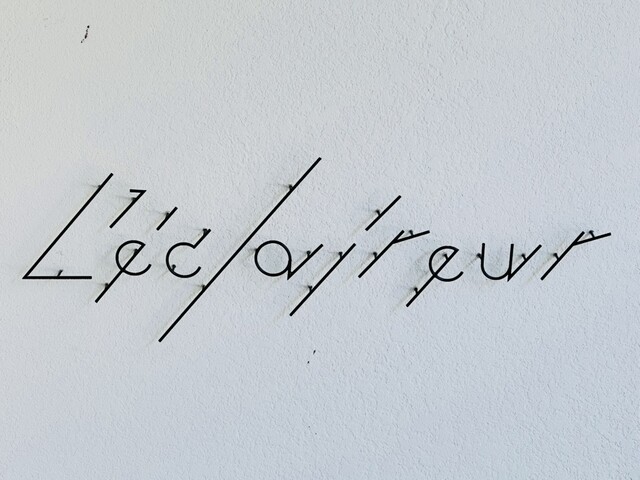 L'éclaireur